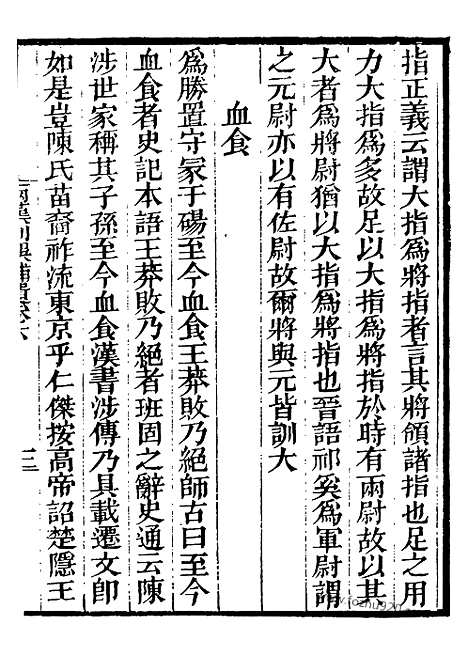 指正義云謂大指爲將指者言其將領諸指也足之用
力大指爲多故足以大指爲將指於時有兩尉故以其
大者爲將尉猶以大指爲將指也晉語祁奚爲軍尉謂
之元尉亦以有佐尉故爾將與元皆訓大
血食
爲勝置守冢于碭至今血食王莽敗乃絕師古曰至今
血食者史記本語王莽敗乃絕者班固之辭史通云陳
涉世家稱其子孫至今血食漢書涉傳乃具載遷文卽
如是豈陳氏苗裔祚流東京乎仁傑按高帝詔楚隱王
兩漢刊誤補遺卷六
三